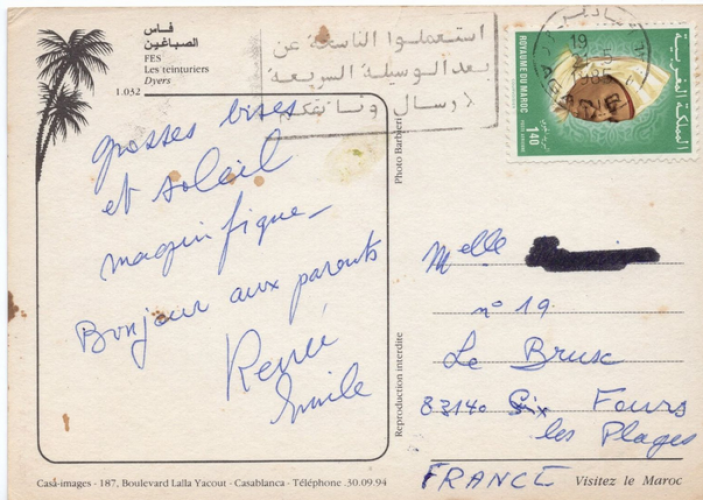 فاس
الصباغين
FES
Les teinturiers
Dyers
1.032
استعملوا الناسخة عن
بعد الوسيلة السريعة
لارسال وثائقكم
19
1986
AGADIR
ROYAUME DU MAROC
المملكة المغربية
1.40
grosses bises
et soleil
magnifique_
Bonjour aux parents
Renée
Emile
Photo Barbieri
Reproduction interdite
Melle
n° 19
Le Brusc
83140 Six Fours
les Plages
FRANCE
Visitez le Maroc
Casá-images - 187, Boulevard Lalla Yacout - Casablanca - Téléphone .30.09.94